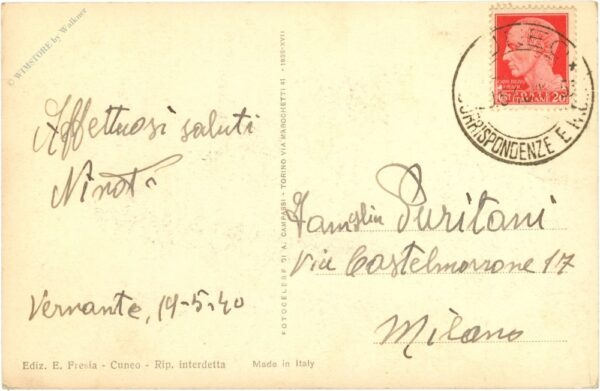 © WIMSTORE by Walkner
Affettuosi saluti
Vernante, 19-5-40
Ediz. E. Fresia - Cuneo - Rip. interdetta
Made in Italy
FOTOCELERE DI A. CAMPASSI - TORINO VIA MAROCHETTI 41 - 1939-XVII
CORRISPONDENZE E
ITALIANE 20
Famiglia Puritani
Via Castelmorrone 17
Milano